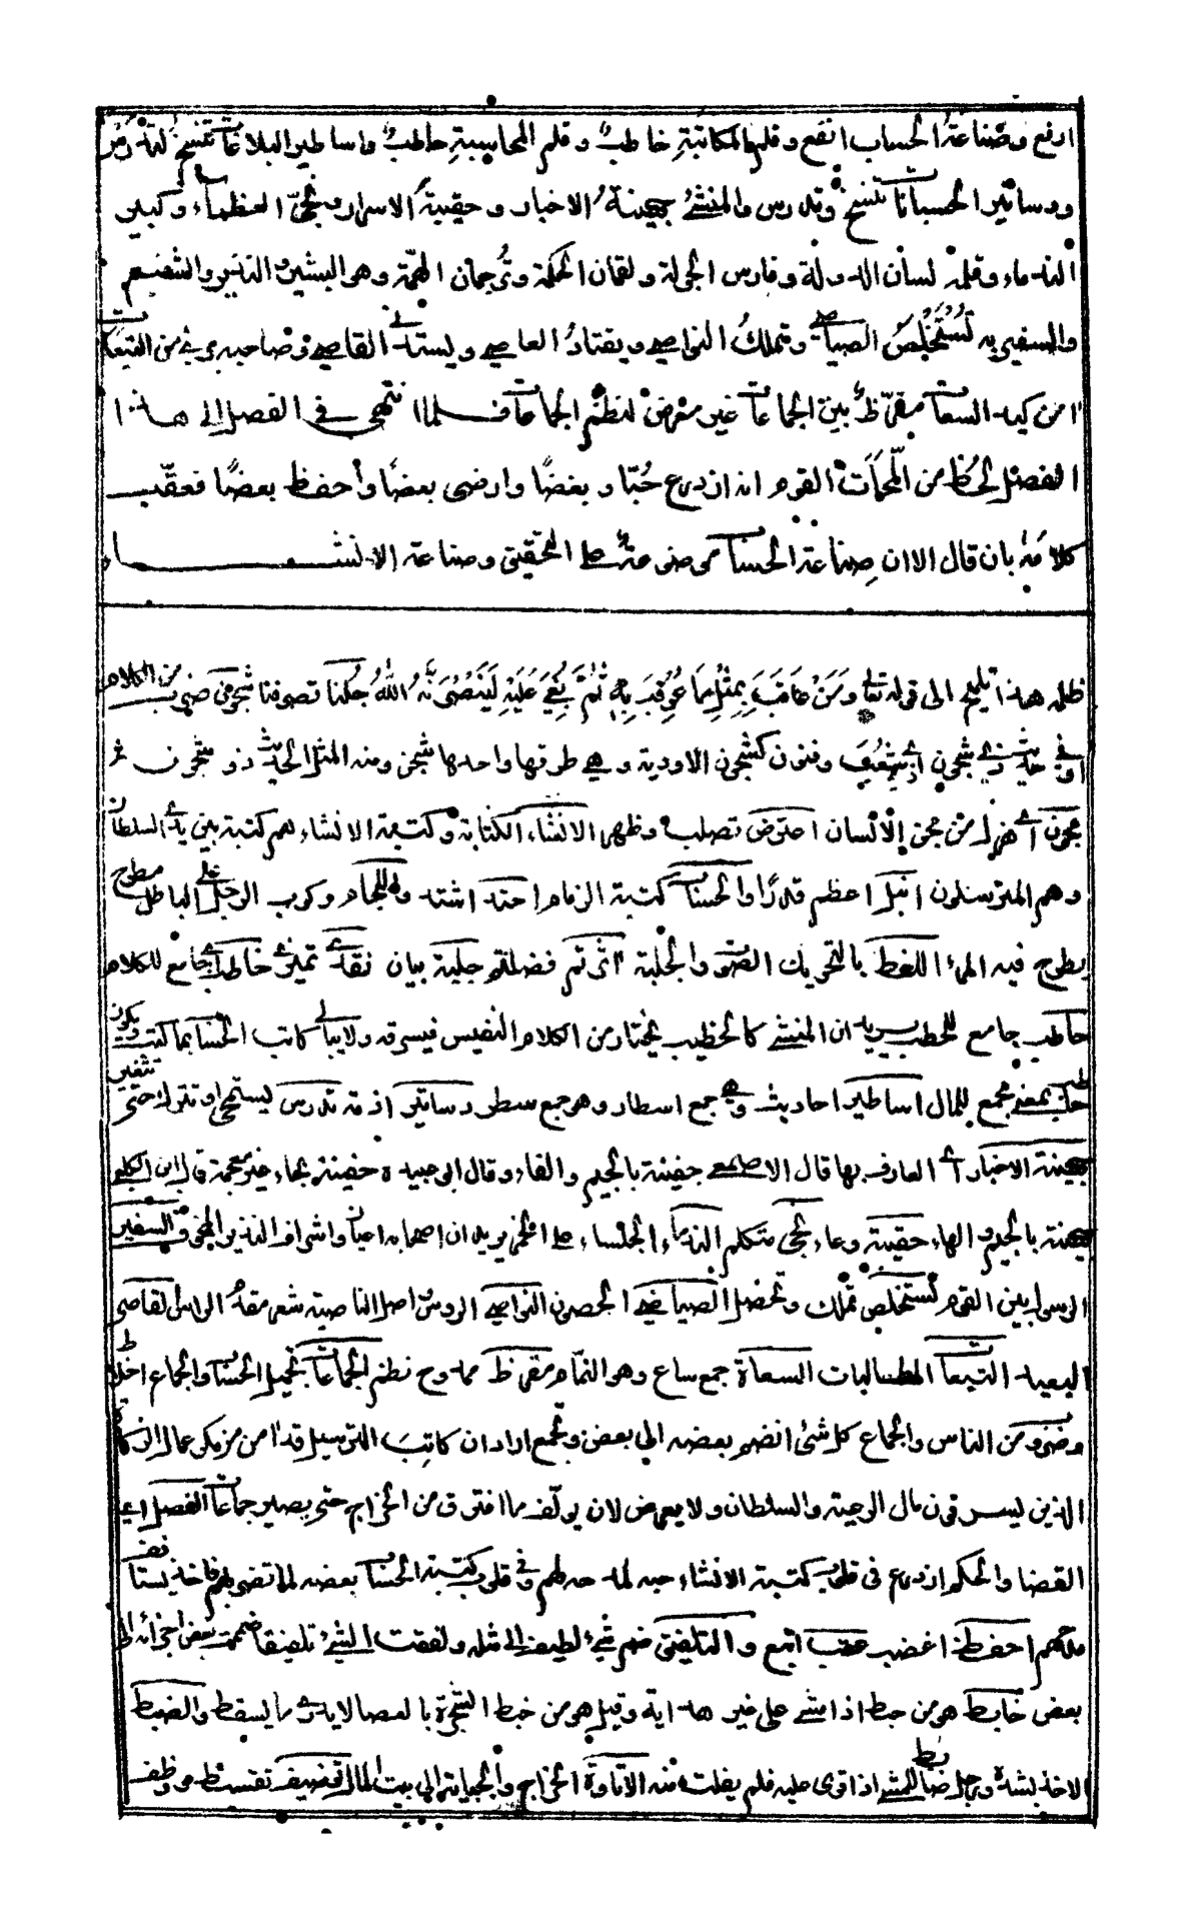 ارفع وصناعةُ الحساب انفع وقلم المكاتبةِ خاطبٌ وقلم المحاسبةِ حاطبٌ واساطير البلاغات تنسخ لتدرس
ودساتير الحسبانات تنسخ وتدرس والمنشئ جهينةُ الاخبار وحقيبةُ الاسرار ونجىّ العظماء وكبير
الندماء وقلمه لسان الدولة وفارس الجولة ولقمان الحكمة وتُرجمان الهمّة وهو البشير والنذير والشفيع
والسفير به تُستخلصُ الصياصي وتملكُ النواصي ويقتادُ العاصي ويستدنى القاصي وصاحبه برئ من التبعات
امن كيد السعات مقرّظٌ بين الجماعات غير معرض لنظم الجماعات فلما انتهى في الفصل الى هذا
الفصل لحظ من لمحات القوم انه ازدرع حُبّا وبغضًا وارضى بعضًا وأحفظ بعضًا فعقّب
كلامَهُ بان قال الا ان صناعة الحساب موضوعةٌ على التحقيق وصناعة الانشاء
ظلمه هذا تلميح الى قوله تعالى وَمَنْ عَاقَبَ بِمِثْلِ مَا عُوقِبَ بِهٖ ثُمَّ بُغِيَ عَلَيْهِ لَيَنْصُرَنَّهُ اللّٰهُ جُلنا تصرفنا شجون ضروب من الكلام
او في حديث ذي شجون أي شعب وفنون كشجون الاودية وهي طرقها واحدها شجن ومنه المثل الحديث ذو شجون
مجون أي هزل من مجن الانسان اعترض تصلب وظهر الانشاء الكتابة وكتبة الانشاء هم كتبة بين يدي السلطان
وهم المترسلون انبل اعظم قدرًا والحساب كتبة الزمام احتد اشتد اللجاج وركوب الرجل على الباطل مطرح
يطرح فيه المراء اللغط بالتحريك الصوت والجلبة فضلتم جلبة بيان نقدى تميزى خاطب جامع للكلام
حاطب جامع للحطب يريد ان المنشئ كالخطيب يختار من الكلام النفيس فيسرقه ولا يبالى كاتب الحساب بما كتب ويكون
حاطب بمعنى مجمع للمال اساطير احاديث وهي جمع اسطار وهو جمع سطر دساتير تدرس يستمحى او تترك حتى تتغير
جهينة الاخبار أي العارف بها قال الاصمعي جفينة بالجيم والفاء وقال ابو عبيدة حفينة بحاء غير معجمة قال ابن الكلبي
جهينة بالجيم والهاء حقيبة وعاء نجى متكلم الندماء الجلساء على الخمر يريد ان اصحابه اعيان واشراف النذير المخوف السفير
الرسول بين القوم تستخلص تملك وتحصل الصياصي الحصون النواصي الروس واصل الناصية شعر مقدم الراس القاصي
البعيد التبعات المطالبات السعاة جمع ساع وهو النمّام مقرظ ممدوح نظم الجماعات تجميل الحساب والجماع اخلاط
وضروب من الناس والجماع كل شئ انضم بعضه الى بعض وتجمع اراد ان كاتبَ الترسيل قد امن من مكر عمال الزكاة
الذين يسرقون مال الرعية والسلطان ولا يعرض لان يولّف ما افترق من الخراج حتى يصير جماعات الفصل اي
القضا والحكم ازدرع في قلوب كتبة الانشاء حبه لمدحه لهم وفي قلوب كتبة الحساب بعضه لما
احفظ اغضب عقب اتبع والتلفيق ضم شئ لطيف الى مثله ولفقت الشئ تلفيقا ضممت بعض اجزائه الى
بعض خابط هو من خبط اذا مشى على غير هداية وقيل هو من خبط الشجرة بالعصا لا يدرى ما يسقط والضبط
الاخذ بشدة ورجل ضابط للشئ اذا قوى عليه فلم يفلت منه الاتاوة الخراج والجباية الى بيت المال توظيف تقسيط موظف